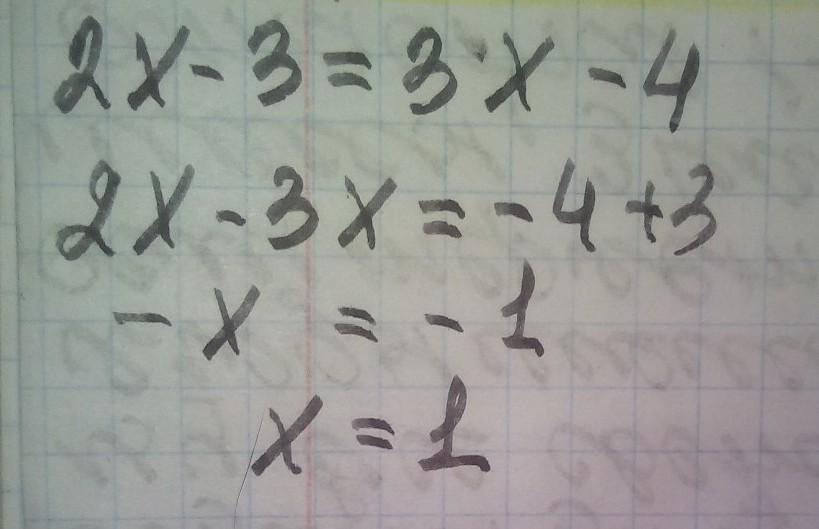 2x - 3 = 3x - 4
2x - 3x = - 4 + 3
- x = - 1
x = 1